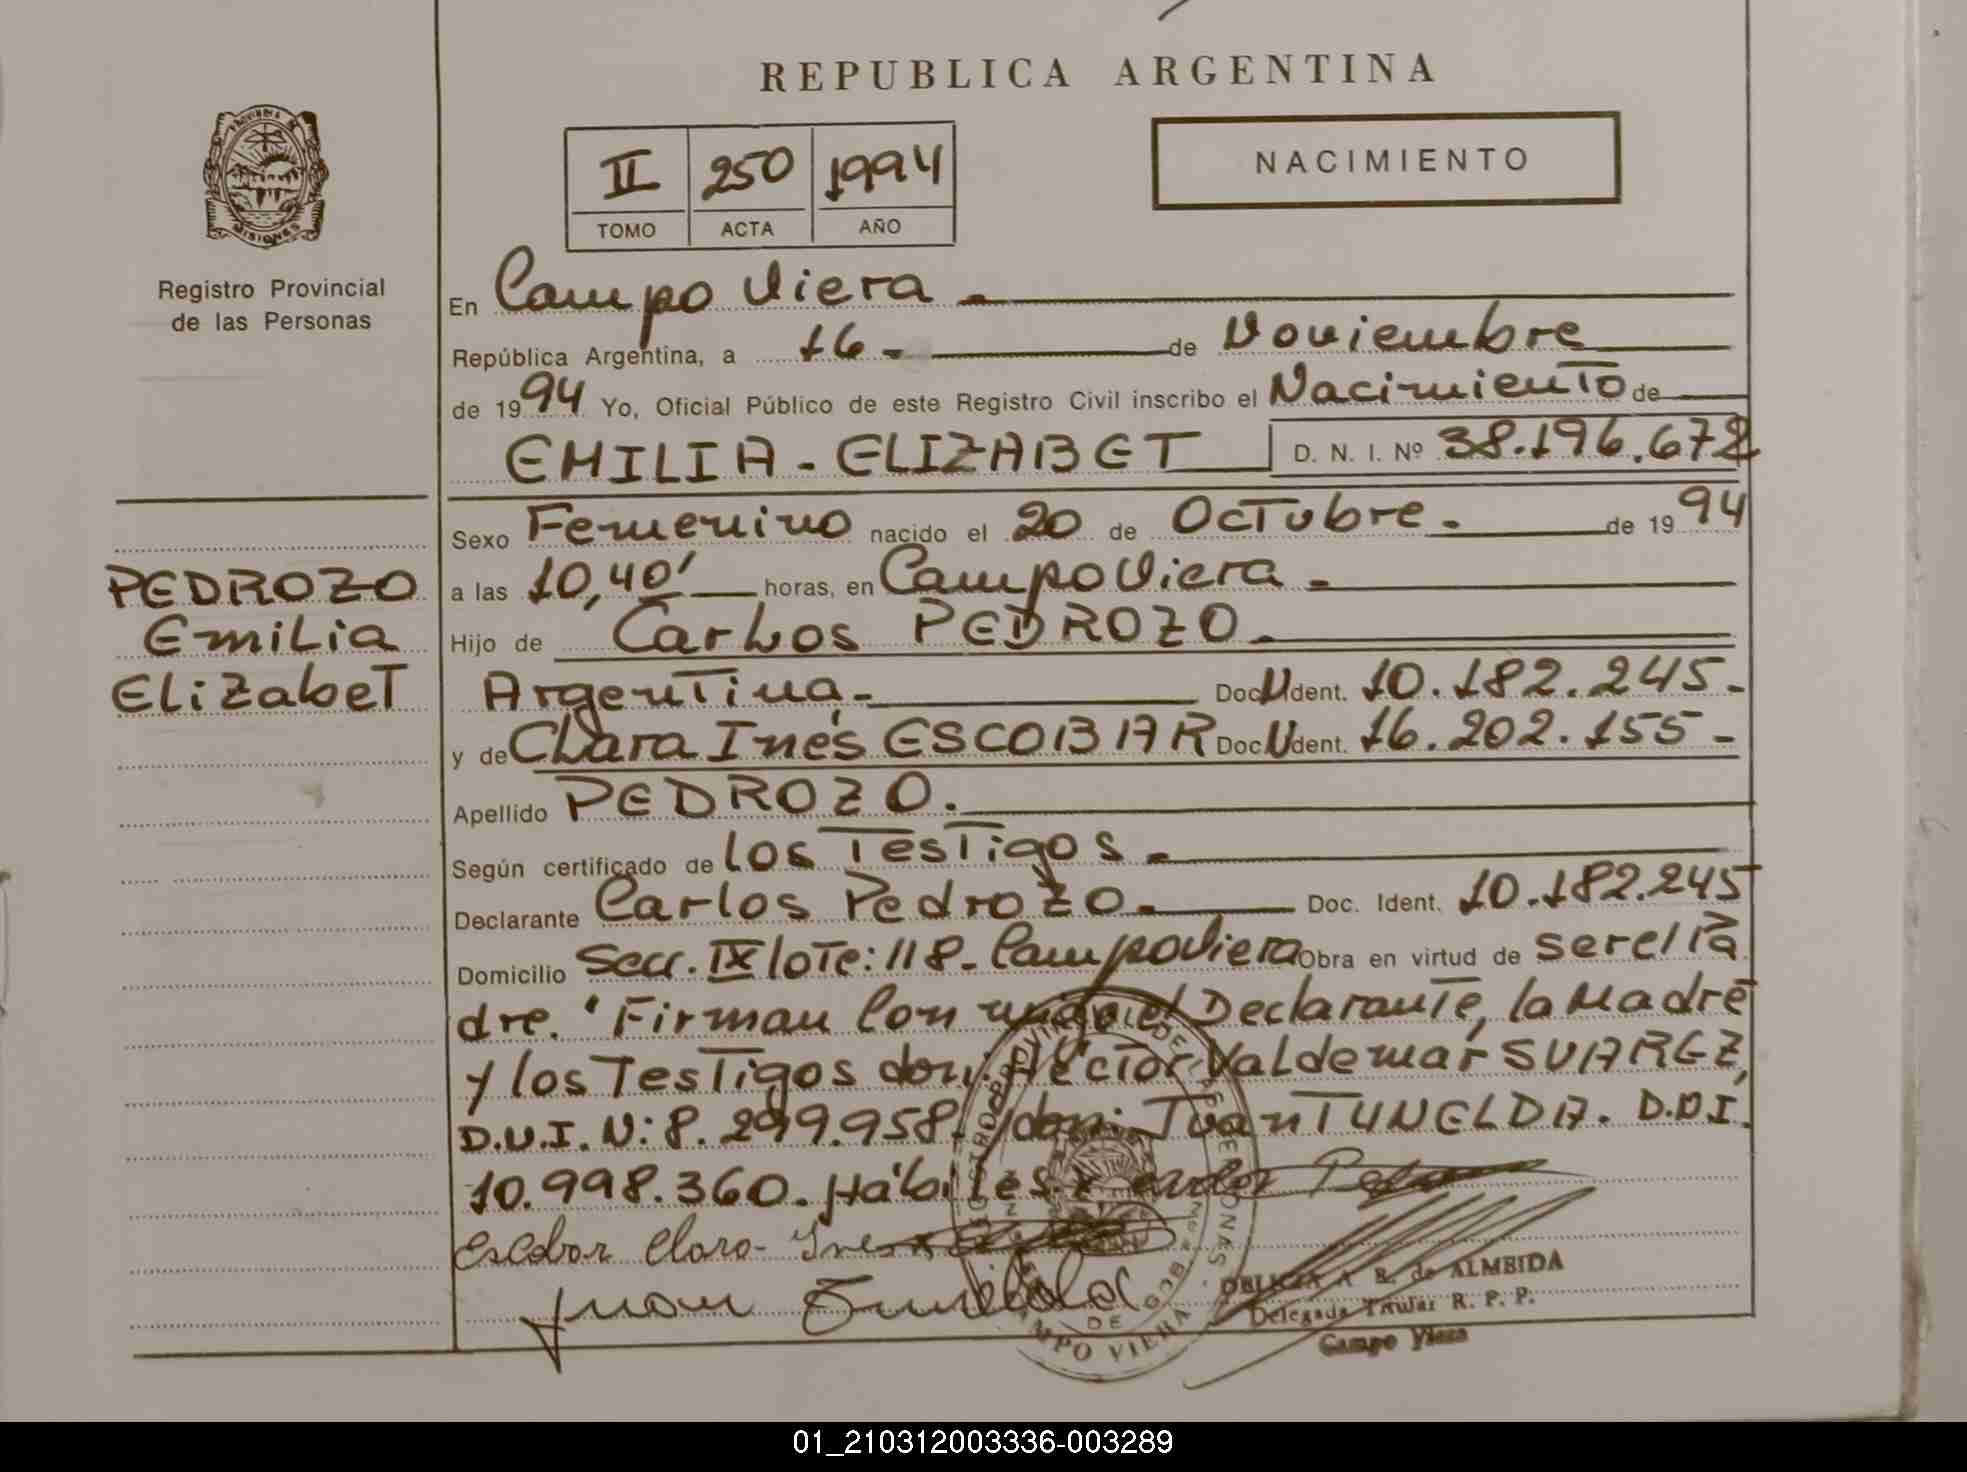 REPUBLICA ARGENTINA
PROVINCIA DE
MISIONES
Registro Provincial
de las Personas
II 250 1994
TOMO ACTA AÑO
NACIMIENTO
En Campo Viera.
República Argentina, a 16. de Noviembre
de 1994 Yo, Oficial Público de este Registro Civil inscribo el Nacimiento de
EMILIA - ELIZABET D. N. I. Nº 38.196.678
Sexo Femenino nacido el 20 de Octubre. de 1994
PEDROZO
Emilia
Elizabet
a las 10,40' horas, en Campo Viera.
Hijo de Carlos PEDROZO.
Argentina. Doc. Ident. 10.182.245.
y de Clara Inés ESCOBAR Doc. Ident. 16.202.155-
Apellido PEDROZO.
Según certificado de los Testigos.
Declarante Carlos Pedrozo. Doc. Ident. 10.182.245
Domicilio Secc. IX lote: 118. Campo Viera Obra en virtud de ser el Pa
dre. Firman Con el Declarante, la Madre
y los Testigos don: Héctor Valdemar SUAREZ,
D.N.I. N: 8.299.958. y don: Juan TUNELDA. D.N.I.
10.998.360. Hábiles.
Escobar Clara Ines
Juan
DE
CAMPO VIERA
DELICIA A R. de ALMEIDA
Delegada Titular R. P. P.
Campo Viera
01_210312003336-003289